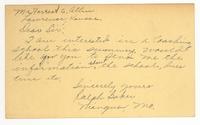 Mr. Forrest C. Allen
Lawrence, Kansas.
Dear Sir;
I am interested in a Coaching
School this summer, would
like for you to send me the
information about the school, fees
time etc.
Sincerely yours
Ralph
Mo.